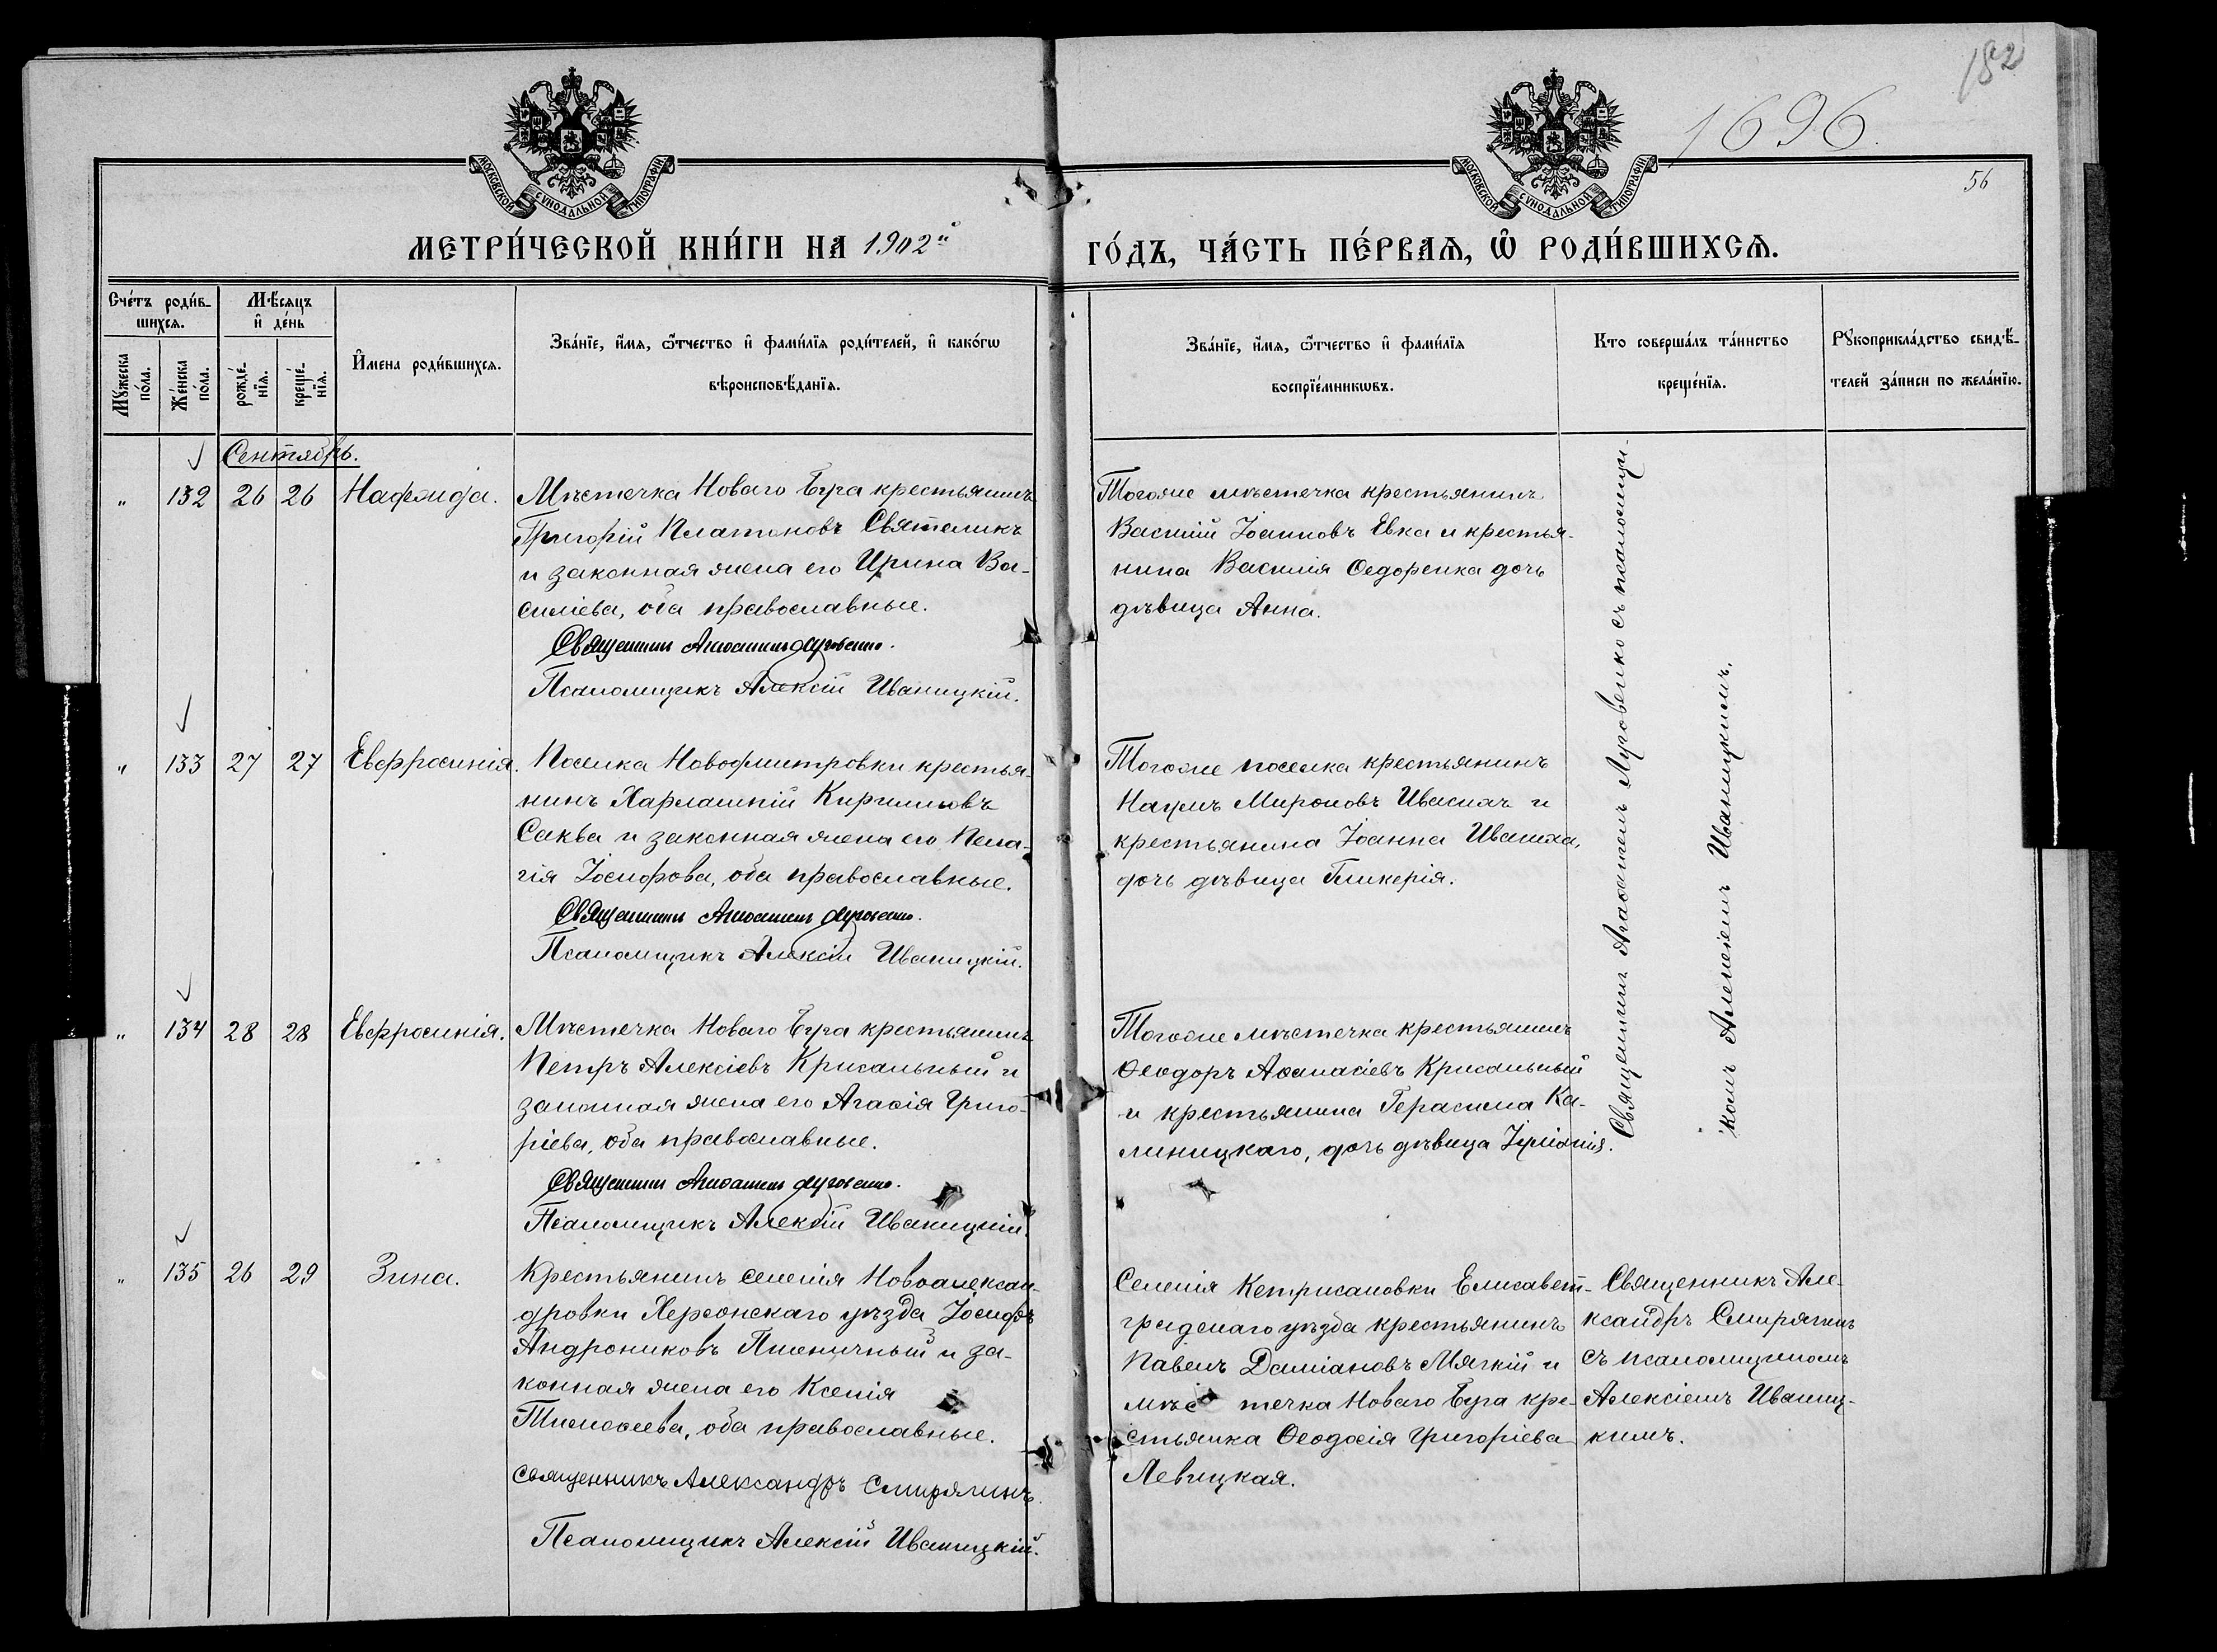 182
1696.
56
МОСКОВСКОЙ СѴНОДАЛЬНОЙ ТИПОГРАФІИ
МОСКОВСКОЙ СѴНОДАЛЬНОЙ ТИПОГРАФІИ
МЕТРИ́ЧЕСКОЙ КНИ́ГИ НА 1902й
ГО́ДЪ, ЧА́СТЬ ПЕ́РВАѦ, Ѽ РОДИ́ВШИХСѦ.
Сче́тъ роди́в-
шихсѧ.
Мѣ́сѧцъ
и҆ де́нь
Мꙋ́жеска по́ла.
Же́нска по́ла.
рожде́-
нїѧ.
креще́-
нїѧ.
И҆мена роди́вшихсѧ.
Зва́нїе, и҆́мѧ, ѻ҆́тчество и҆ фами́лїѧ роди́телей, и҆ како́гѡ
вѣроисповѣ́данїѧ.
Зва́нїе, и҆́мѧ, ѻ҆́тчество и҆ фами́лїѧ
воспрїе́мникѡвъ.
Кто соверша́лъ та́инство
креще́нїѧ.
Рꙋкоприкла́дство свидѣ́-
телей за́писи по жела́нїю.
Сентябрь.
" 132 26 26
Местечка Новаго Буга крестьянинъ
Григорій Платоновъ
и законная жена его Ирина Ва-
силіева, оба православные.
Священникъ
Псаломщикъ Алексій Иваницкій.
Тогоже мѣстечка крестьянинъ
Василій Іоанновъ Евка и крестья-
нина Василія Ѳедоренка дочь
дѣвица Анна.
" 133 27 27 Евфросинія.
Поселка Новодмитровки крестья-
нинъ Харлампій Кирилловъ
Саква и законная жена его Пела-
гія Іосифова, оба православные.
Священникъ
Псаломщикъ Алексій Иваницкій.
Тогоже поселка крестьянинъ
Наумъ Мироновъ и
крестьянина Іоанна
дочь дѣвица Гликерія.
" 134 28 28 Евфросинія.
Мѣстечка Новаго Буга крестьянинъ
Петръ Алексіевъ Крисальный и
законная жена его Агаѳія Григо-
ріева, оба православные.
Священникъ
Псаломщикъ Алексій Иваницкій.
Тогоже мѣстечка крестьянинъ
Ѳеодоръ Аѳанасіевъ Крисальный
и крестьянина Герасима Ка-
линицкаго, дочь дѣвица Іуліанія.
Священникъ съ псаломщи-
комъ Алексіемъ Иваницкимъ.
" 135 26 29 Зина.
Крестьянинъ селенія Новоалексан-
дровки Херсонскаго уѣзда Іосифъ
Андрониковъ Пшеничный и за-
конная жена его Ксенія
Тимоѳеева, оба православные.
Священникъ Александръ Смирягинъ.
Псаломщикъ Алексій Иваницкій.
Селенія Кетрисановки Елисавет-
градскаго уѣзда крестьянинъ
Павелъ Даміановъ Мягкій и
мѣс течка Новаго Буга кре-
стьянка Ѳеодосія Григоріева
Левицкая.
Священникъ Але-
ксандръ Смирягинъ
съ псаломщикомъ
Алексіемъ Иваниц-
кимъ.